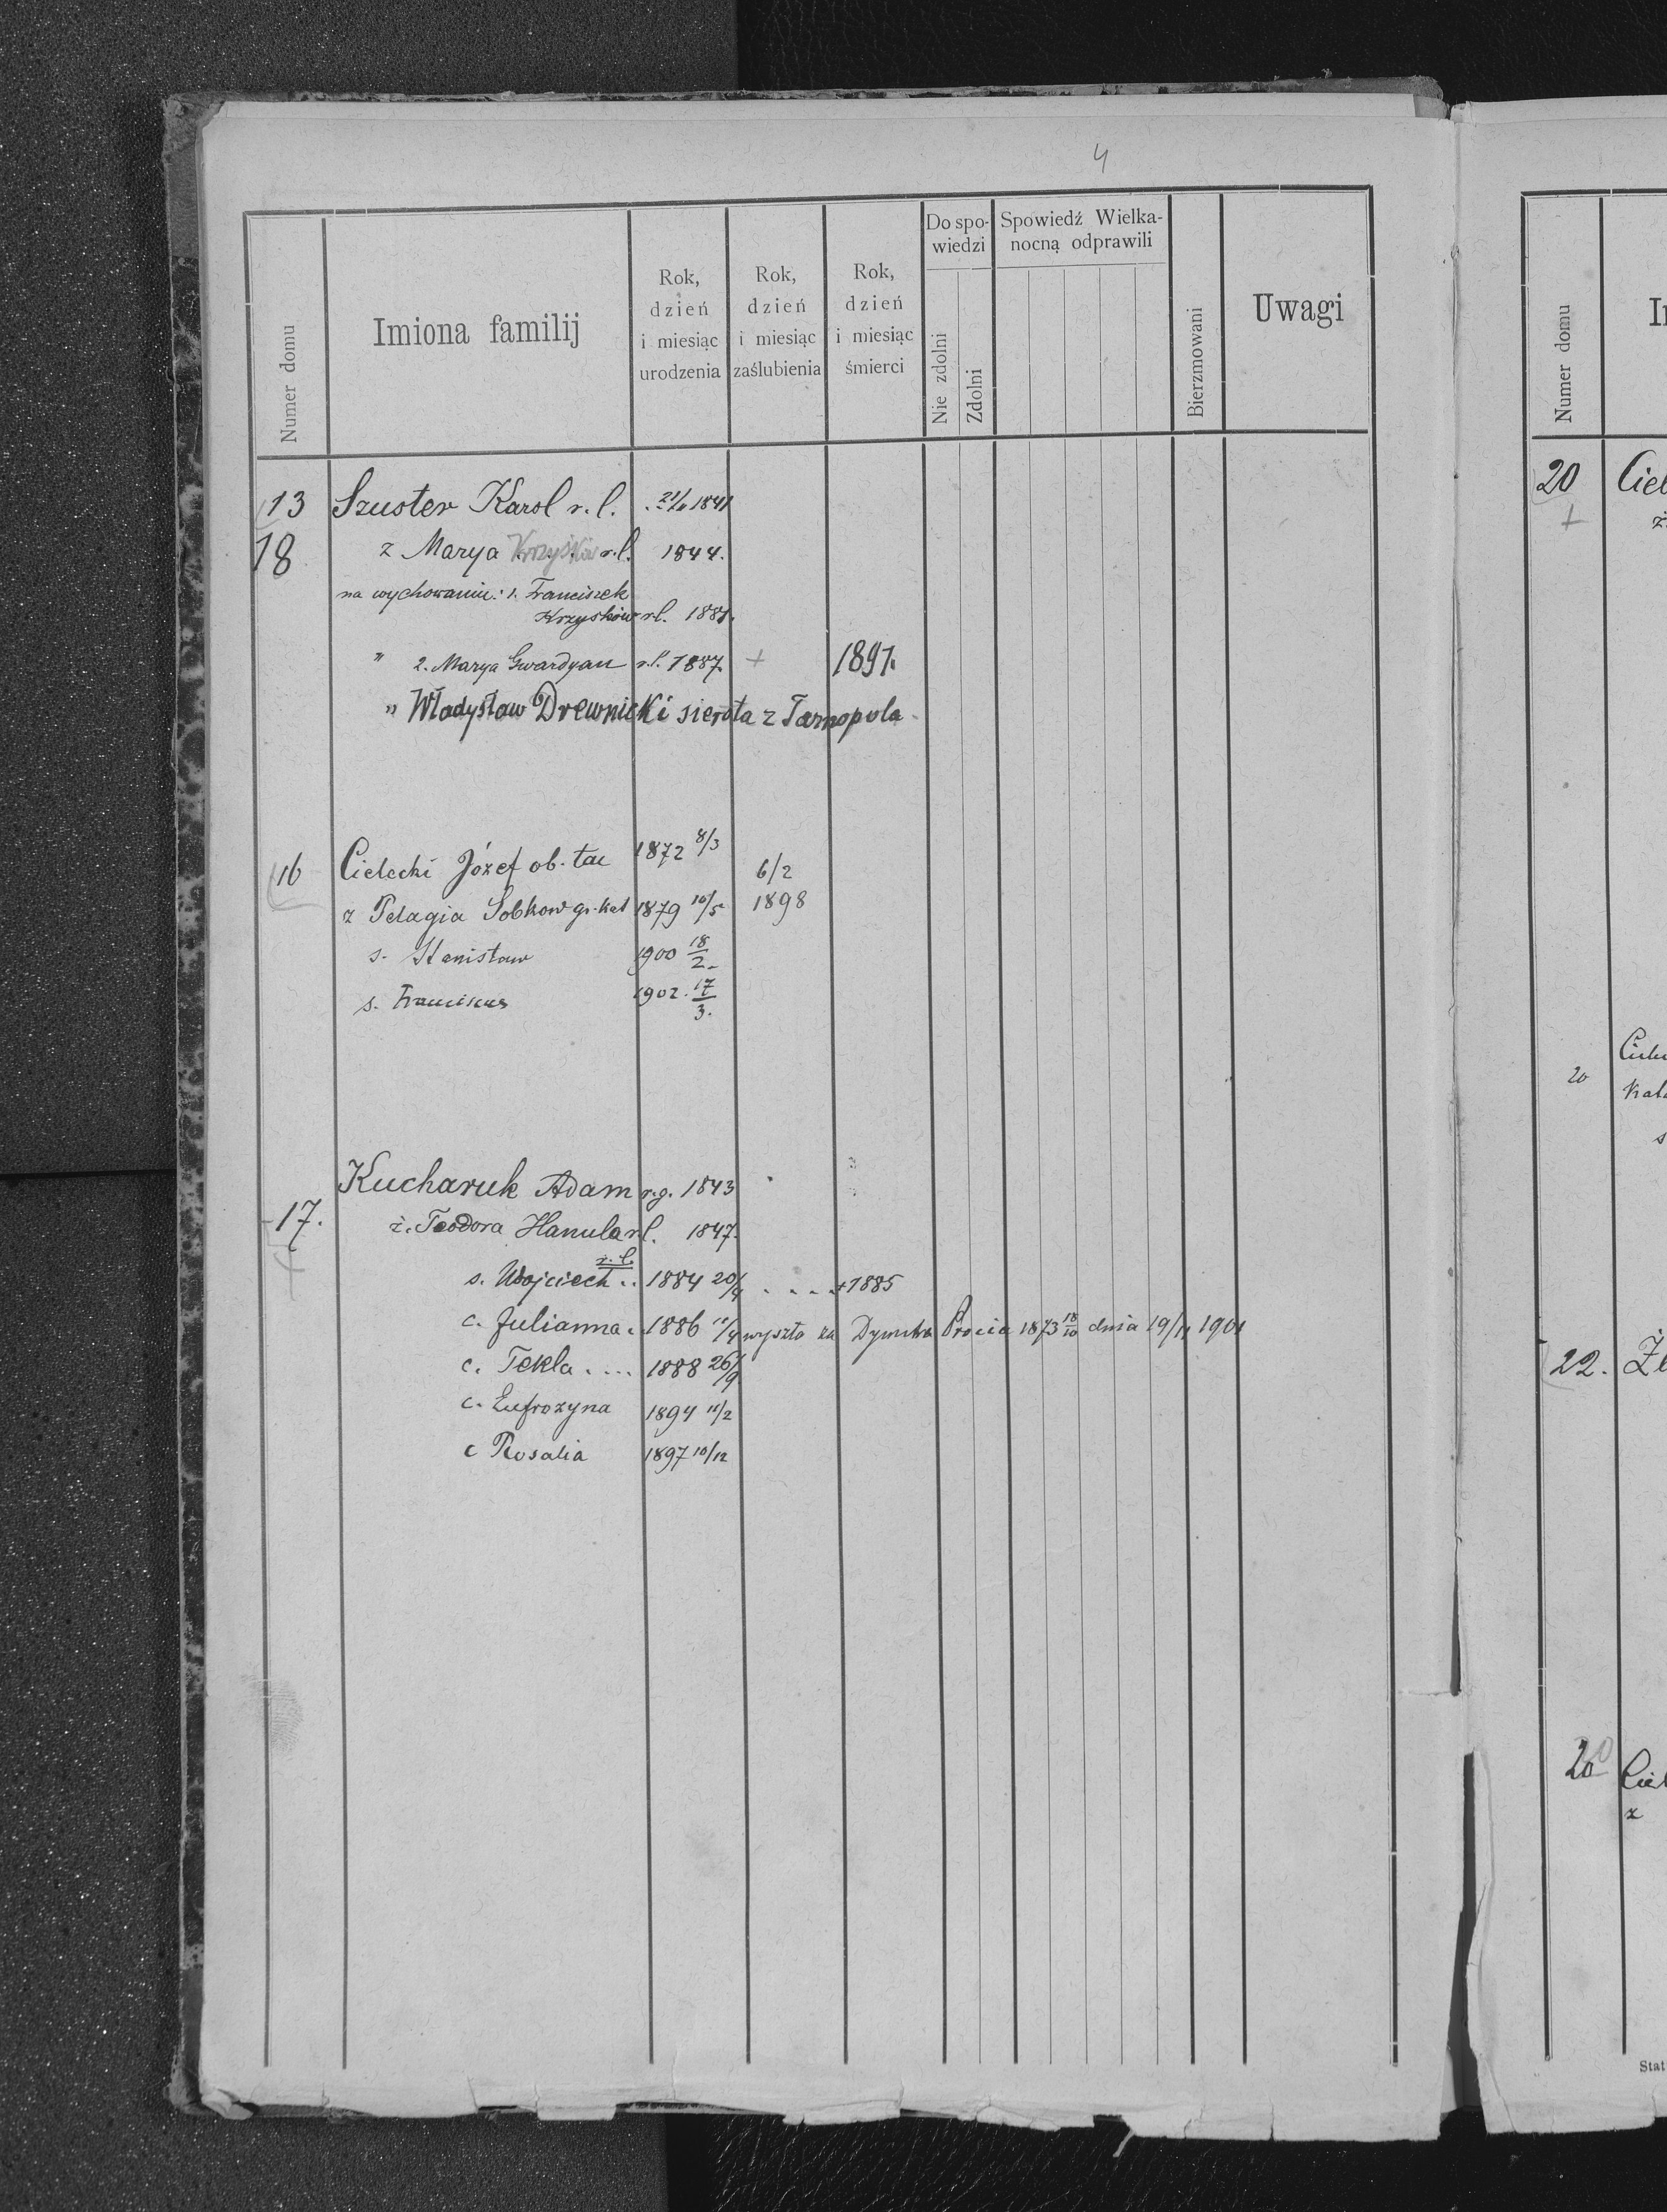 4
Numer domu
Imiona familij
Rok,
dzień
i miesiąc
urodzenia
Rok,
dzień
i miesiąc
zaślubienia
Rok,
dzień
i miesiąc
śmierci
Do spo-
wiedzi
Nie zdolni
Zdolni
Spowiedź Wielka-
nocną odprawili
Bierzmowani
Uwagi
13 Szuster Karol r. l. 1841
18 z Marya Krzyśków r.l. 1844.
na wychowaniu: 1. Franciszek
Krzysków r.l. 1881.
" 2. Marya Gwardyan r.l. 1887. + 1897.
" Władysław Drewnicki sierota z Tarnopola
16 Cielecki Józef ob. łac 1872 8/3
6/2
z Pelagia Sobkow gr.-kat 1879 10/5 1898
s. Stanisław 1900 18/2.
s. Franciscus 1902. 17/3.
Kucharuk Adam r.g. 1843
17. ż. Teodora Hanula r.l. 1847.
r. l.
s. Wojciech .. 1884 20/4 . . . . +1885
c. Julianna . 1886 11/4 wyszła za Dymitra Procia 1873 18/10 dnia 19/11 1901
c. Tekla .... 1888 26/9
c. Eufrozyna 1894 11/2
c Rosalia 1897 10/12
Numer domu
20 Ciel
+
20
Kat
s
22.
20 Ciel
z
Stat